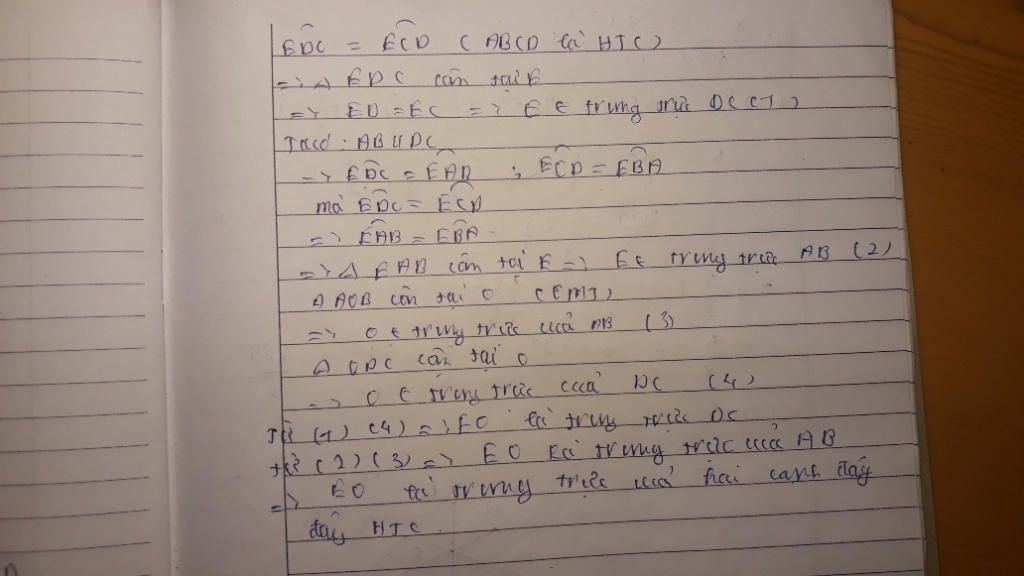 EDC = ECD ( ABCD là HTC )
=> Δ EDC cân tại E
=> ED = EC => E ∈ trung trực DC (1)
Ta có : AB // DC
=> EDC = EAB ; ECD = EBA
mà EDC = ECD
=> EAB = EBA
=> Δ EAB cân tại E => E ∈ trung trực AB (2)
Δ AOB cân tại O (CMT)
=> O ∈ trung trực của AB (3)
Δ ODC cân tại O
=> O ∈ trung trực của DC (4)
Từ (1) (4) => EO là trung trực DC
từ (2) (3) => EO là trung trực của AB
=> EO là trung trực của hai cạnh đáy
đáy HTC.